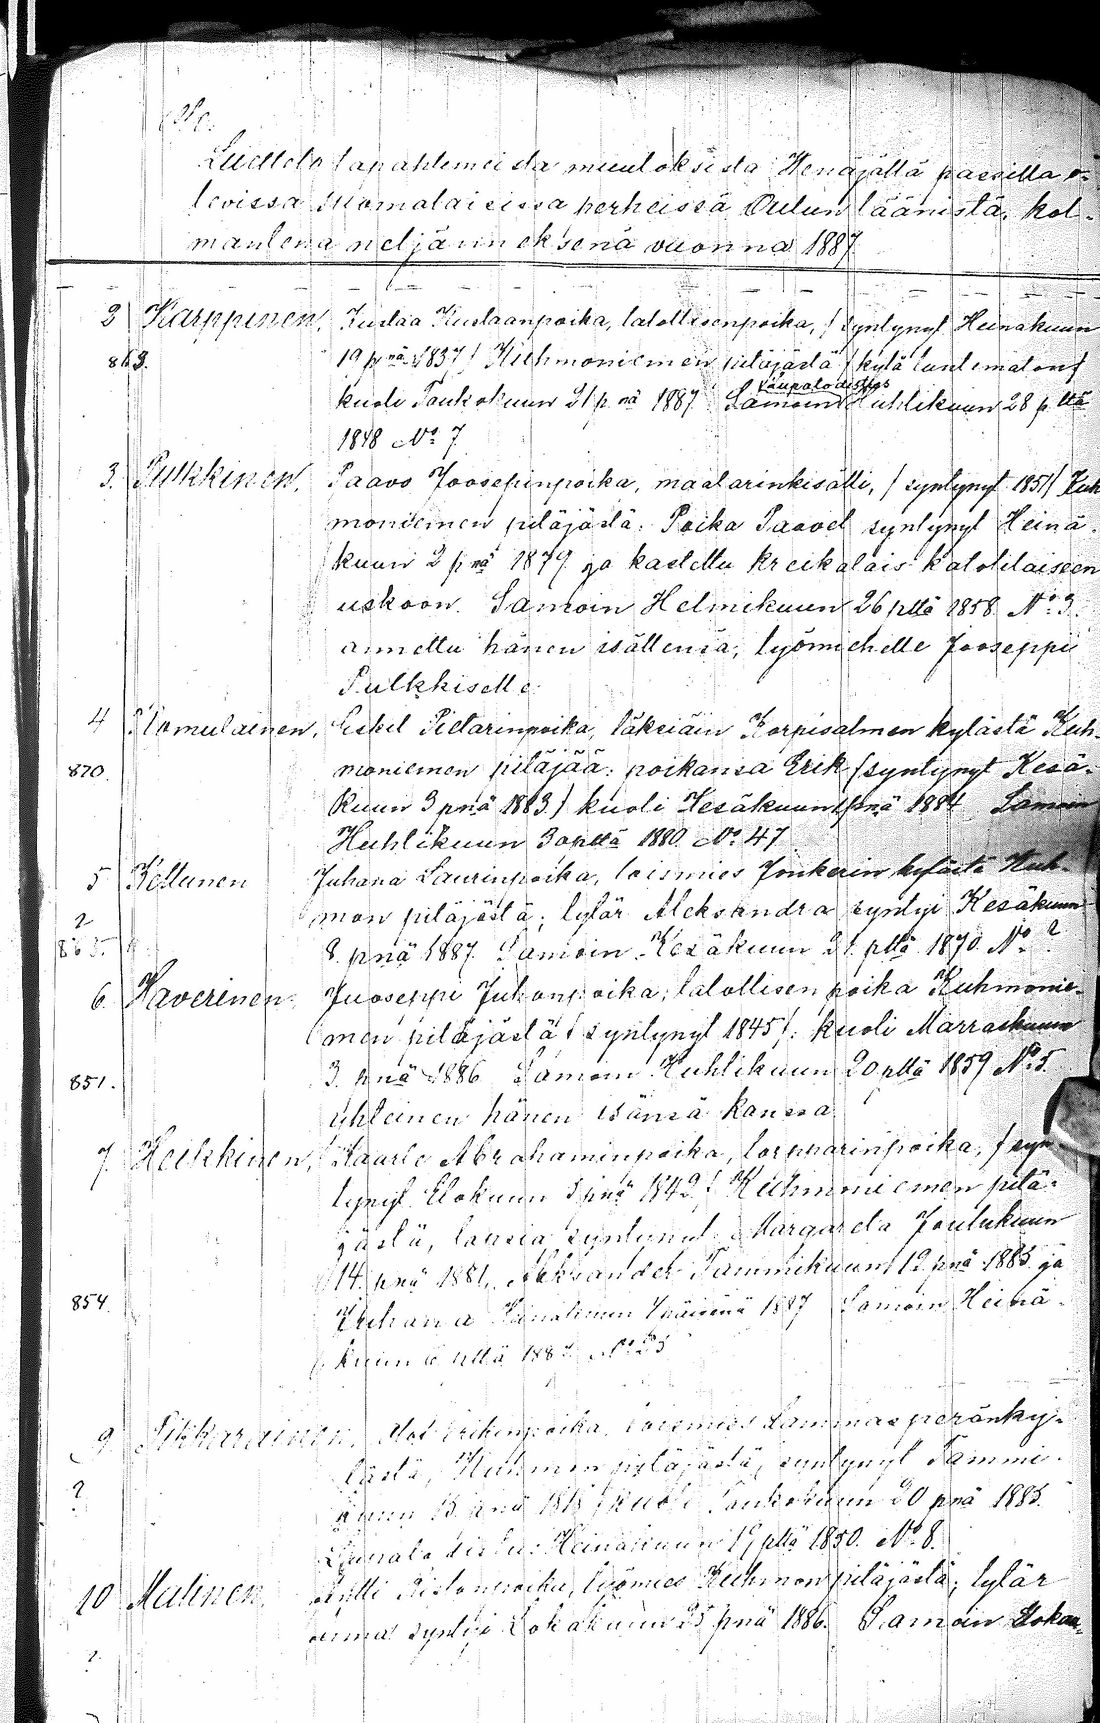 Luettelo tapahtuneista muutoksista Venäjällä passilla o-
levissa suomalaisissa perheissä Oulun läänistä, kol-
mantena neljänneksenä vuonna 1887.
2 Karppinen, Kustaa Kustaanpoika, talollisenpoika, / syntynyt Heinäkuun
863. 19 pnä 1837 / Kuhmoniemen pitäjästä / kylä tuntematon /
kuoli Toukokuun 21 pnä 1887 Samoin Huhtikuun 28 p. ltä
1848 No 7
3. Pulkkinen, Paavo Joosepinpoika, maalarinkisälli, / syntynyt 1851 / Kuh
moniemen pitäjästä: Poika Paavel syntynyt Heinä-
kuun 2 pnä 1879 ja kastettu kreikalais katolilaiseen
uskoon. Samoin Helmikuun 26 pltä 1858 No 3.
annettu hänen isällensä, työmiehelle Jooseppi
Pulkkiselle.
4 Eskel Pietarinpoika, läksiäin Korpisalmen kylästä Kuh-
870. moniemen pitäjää: poikansa Erik / syntynyt Kesä-
kuun 3 pnä 1883 / kuoli Kesäkuun pnä 1884 Samoin
Huhtikuun 30 pltä 1880. No 47
5 Keltunen Juhana Laurinpoika, loismies Jonkerin kylästä Kuh-
2 mon pitäjästä; tytär Aleksandra syntyi Kesäkuun
865. 8 pnä 1887. Samoin Kesäkuun 21 pltä 1870. No ?
6. Haverinen, Juoseppi Juhonpoika, talollisen poika Kuhmonie-
men pitäjästä / syntynyt 1845 /: kuoli Marraskuun
851. 3. pnä 1886 Samoin Huhtikuun 20 pltä 1859 No 5.
yhteinen hänen isänsä kanssa
7. Heikkinen, Kaarle Abrahaminpoika, torpparinpoika, / syn
tynyt Elokuun 3 pnä 1842 / Kuhmoniemen pitä-
jästä, lapsia syntynyt Margareta Joulukuun
14. pnä 1881, Aleksander Tammikuun 12 pnä 1885 ja
854. Juhana 1887 Samoin Heinä-
kuun 6 pltä No 25
9 Pikkarainen, loismies Lammasperänky-
? lästä, Kuhmon pitäjästä, syntynyt Tammi-
kuun 15 pnä kuoli Toukokuun 20 pnä 1885.
Heinäkuun 19 pltä 1850. No 8.
10 Malinen, Antti Ristonpoika, työmies Kuhmon pitäjästä; tytär
? Anna syntyi Lokakuun 25 pnä 1886. Samoin